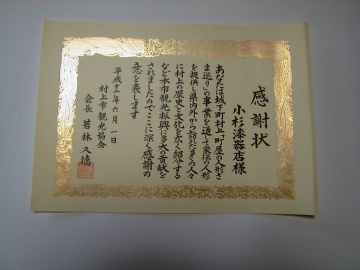 感謝状
小杉漆器店様
あなたは城下町村上「町屋の人形さ
ま巡り」の事業を通して家伝の人形
を提供し県内外から訪れた多くの人々
に村上の歴史と文化を広く紹介する
など本市観光振興に多大の貢献を
されましたのでここに深く感謝の
意を表します
平成十六年六月一日
村上市観光協会
会長 若林久徳